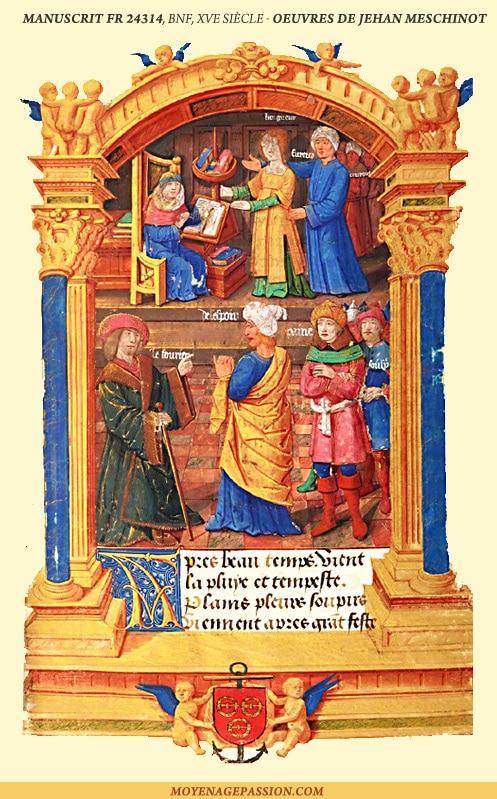 MANUSCRIT FR 24314, BNF, XVE SIÈCLE - OEUVRES DE JEHAN MESCHINOT
desespoir
pres beau temps. Vient
La pluye et tempeste.
Plains pleurs souspirs
Viennent apres grāt feste
MOYENAGEPASSION.COM